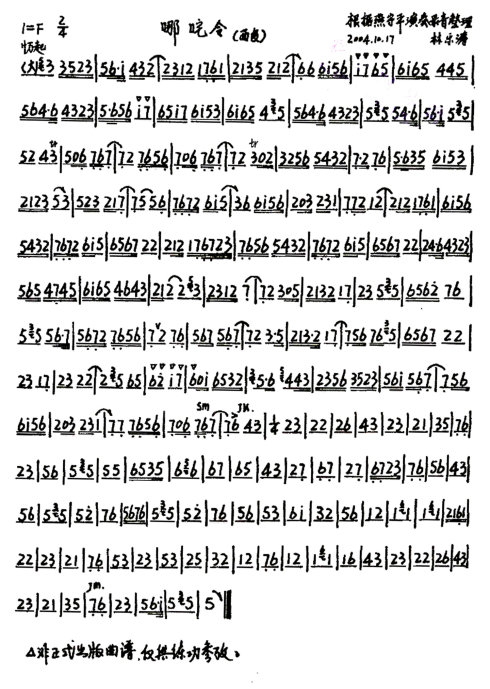 1=F 2/4 哪吒令 (西皮) 根据燕守平演奏录音整理
2004.10.17 林乐谱
3523|56·i 432|2312 1761|2135 212|66 6i56|i765|6i65 445|
564·6 4323|5·656 i7|65i7 6i53|6i65 4 5|564·6 4323|5 5 54·6|56·i 5 5|
52 43|506 767|72 7656|706 767|72 302|3256 5432|7·2 76|5·635 6i53|
2123 53|523 217|7556|7672 6i5|36 6i56|203 231|772 12|212 1761|6i56|
5432|7672 6i5|6567 22|212 176723|7656 5432|7672 6i5|6567 22|24·64323|
565 4745|6i65 4643|212 2 3|2312 7|72 305|2132 17|23 5 5|6562 76|
5 5 56·7|5672 7656|72 76|567 567|72 3·5|213·2 17|756 76 5|6567 22|
23 17|23 22|2 5 65|62 i7|60i 6532|5·6 443|2356 3523|56i 567|756|
6i56|203 231|77 7656|706 767|76 43|1/4 23|22|26|43|23|21|35|76|
23|56|5 5|55|6535|6 6|67|65|43|27|67|27|6723|76|56|43|
56|5 5|52|76|5676|5 5|52|76|56|53|6i|32|56|12|1 1|1 1|2161|
22|23|21|76|53|23|53|25|32|12|76|12|1 1|16|43|23|22|26|43|
23|21|35|76|23|56·i|5 5|5‖
△非正式出版曲谱,仅供练功参考。